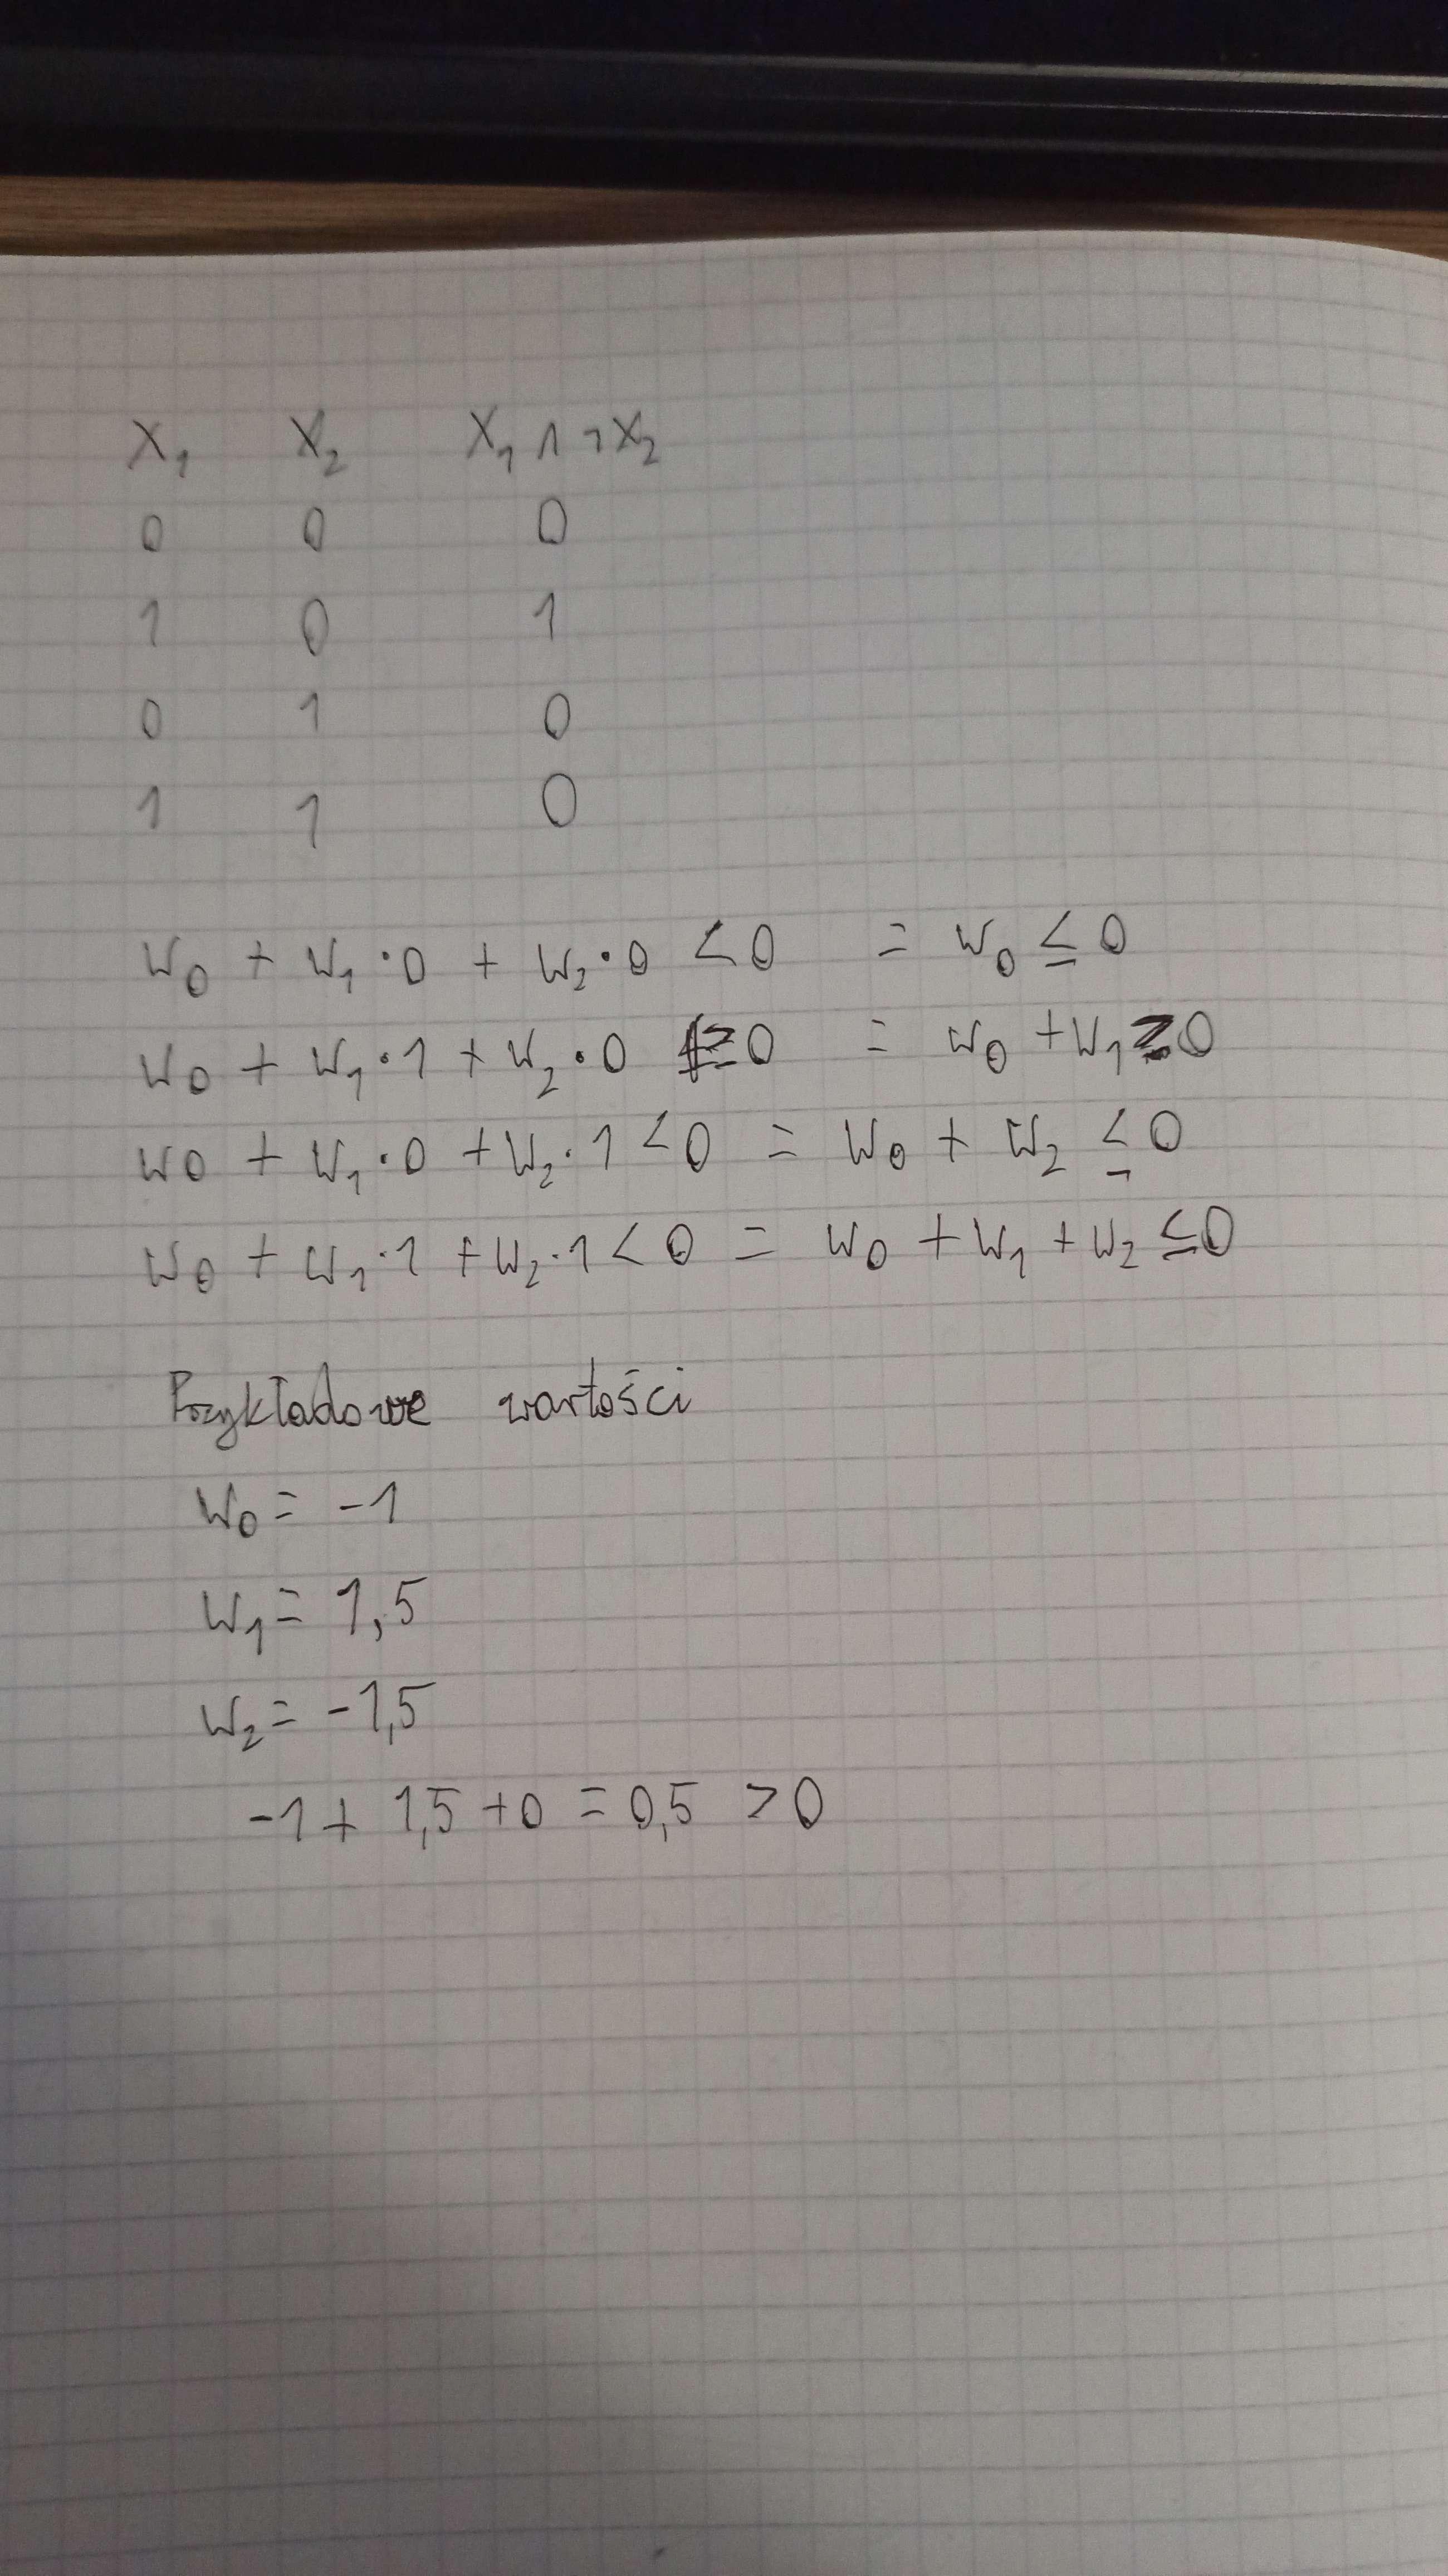 x₁ x₂ x₁ ∧ ¬x₂
0 0 0
1 0 1
0 1 0
1 1 0
w₀ + w₁·0 + w₂·0 < 0 = w₀ ≤ 0
w₀ + w₁·1 + w₂·0 ≥ 0 = w₀ + w₁ ≥ 0
w₀ + w₁·0 + w₂·1 < 0 = w₀ + w₂ ≤ 0
w₀ + w₁·1 + w₂·1 < 0 = w₀ + w₁ + w₂ ≤ 0
Przykładowe wartości
w₀ = -1
w₁ = 1,5
w₂ = -1,5
-1 + 1,5 + 0 = 0,5 > 0